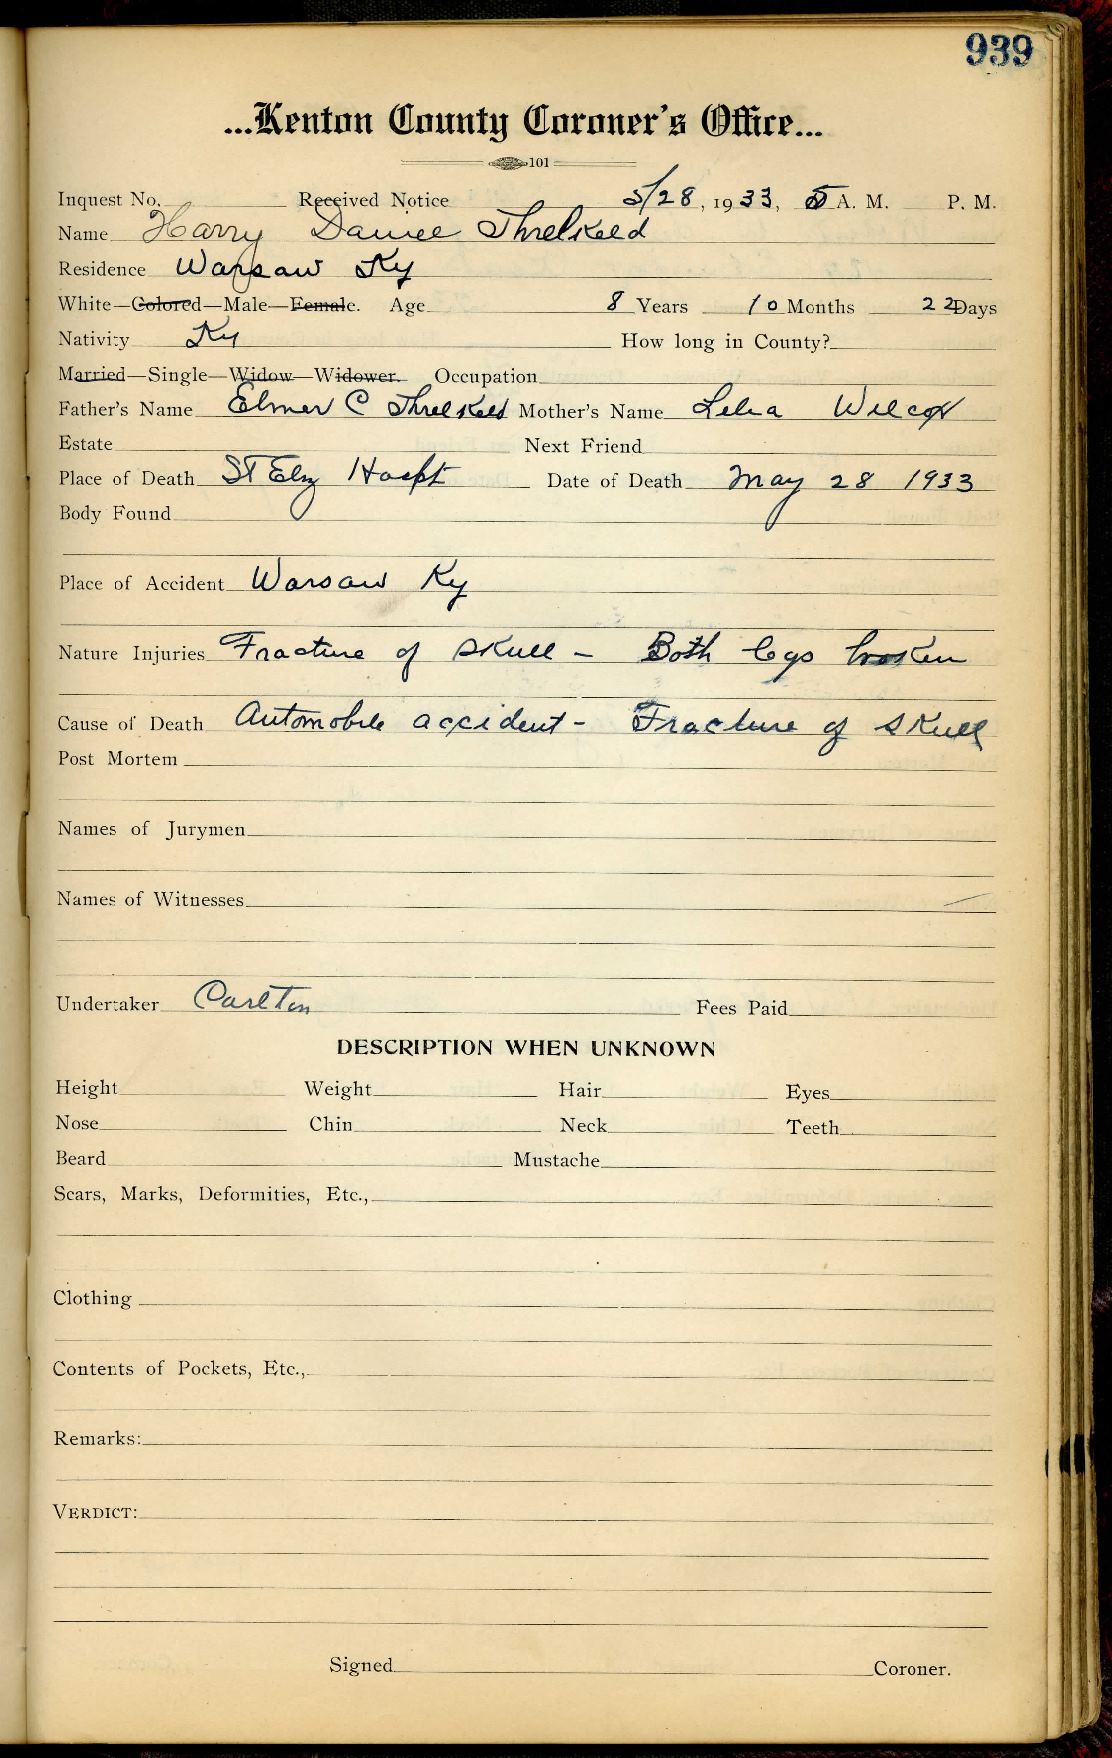 939
...Kenton County Coroner's Office...
101
Inquest No. Received Notice 5/28, 1933, 5 A. M. P. M.
Name Harry Daniel Threlkeld
Residence Warsaw Ky
White—Colored—Male—Female. Age 8 Years 10 Months 22 Days
Nativity Ky How long in County?
Married—Single—Widow—Widower. Occupation
Father's Name Elmer C Threlkeld Mother's Name Lelia Wilcox
Estate Next Friend
Place of Death St Eliz Hospt Date of Death May 28 1933
Body Found
Place of Accident Warsaw Ky
Nature Injuries Fracture of Skull - Both legs broken
Cause of Death Automobile accident - Fracture of Skull
Post Mortem
Names of Jurymen
Names of Witnesses
Undertaker Carlton Fees Paid
DESCRIPTION WHEN UNKNOWN
Height Weight Hair Eyes
Nose Chin Neck Teeth
Beard Mustache
Scars, Marks, Deformities, Etc.,
Clothing
Contents of Pockets, Etc.,
Remarks:
VERDICT:
Signed Coroner.